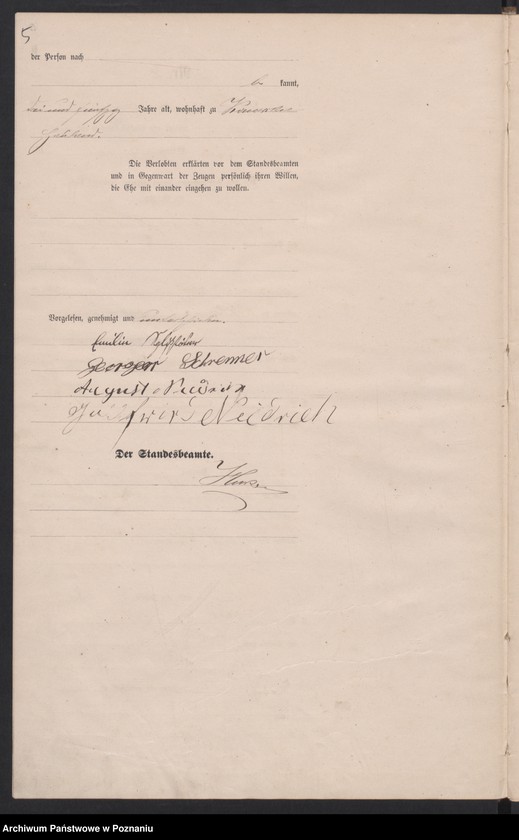 5
der Person nach
be kannt,
Jahre alt, wohnhaft zu
Die Verlobten erklärten vor dem Standesbeamten
und in Gegenwart der Zeugen persönlich ihren Willen,
die Ehe mit einander eingehen zu wollen.
Vorgelesen, genehmigt und unterschrieben.
Emilie
Schremmer
August Neidrich
Neidrich
Der Standesbeamte.
Archiwum Państwowe w Poznaniu